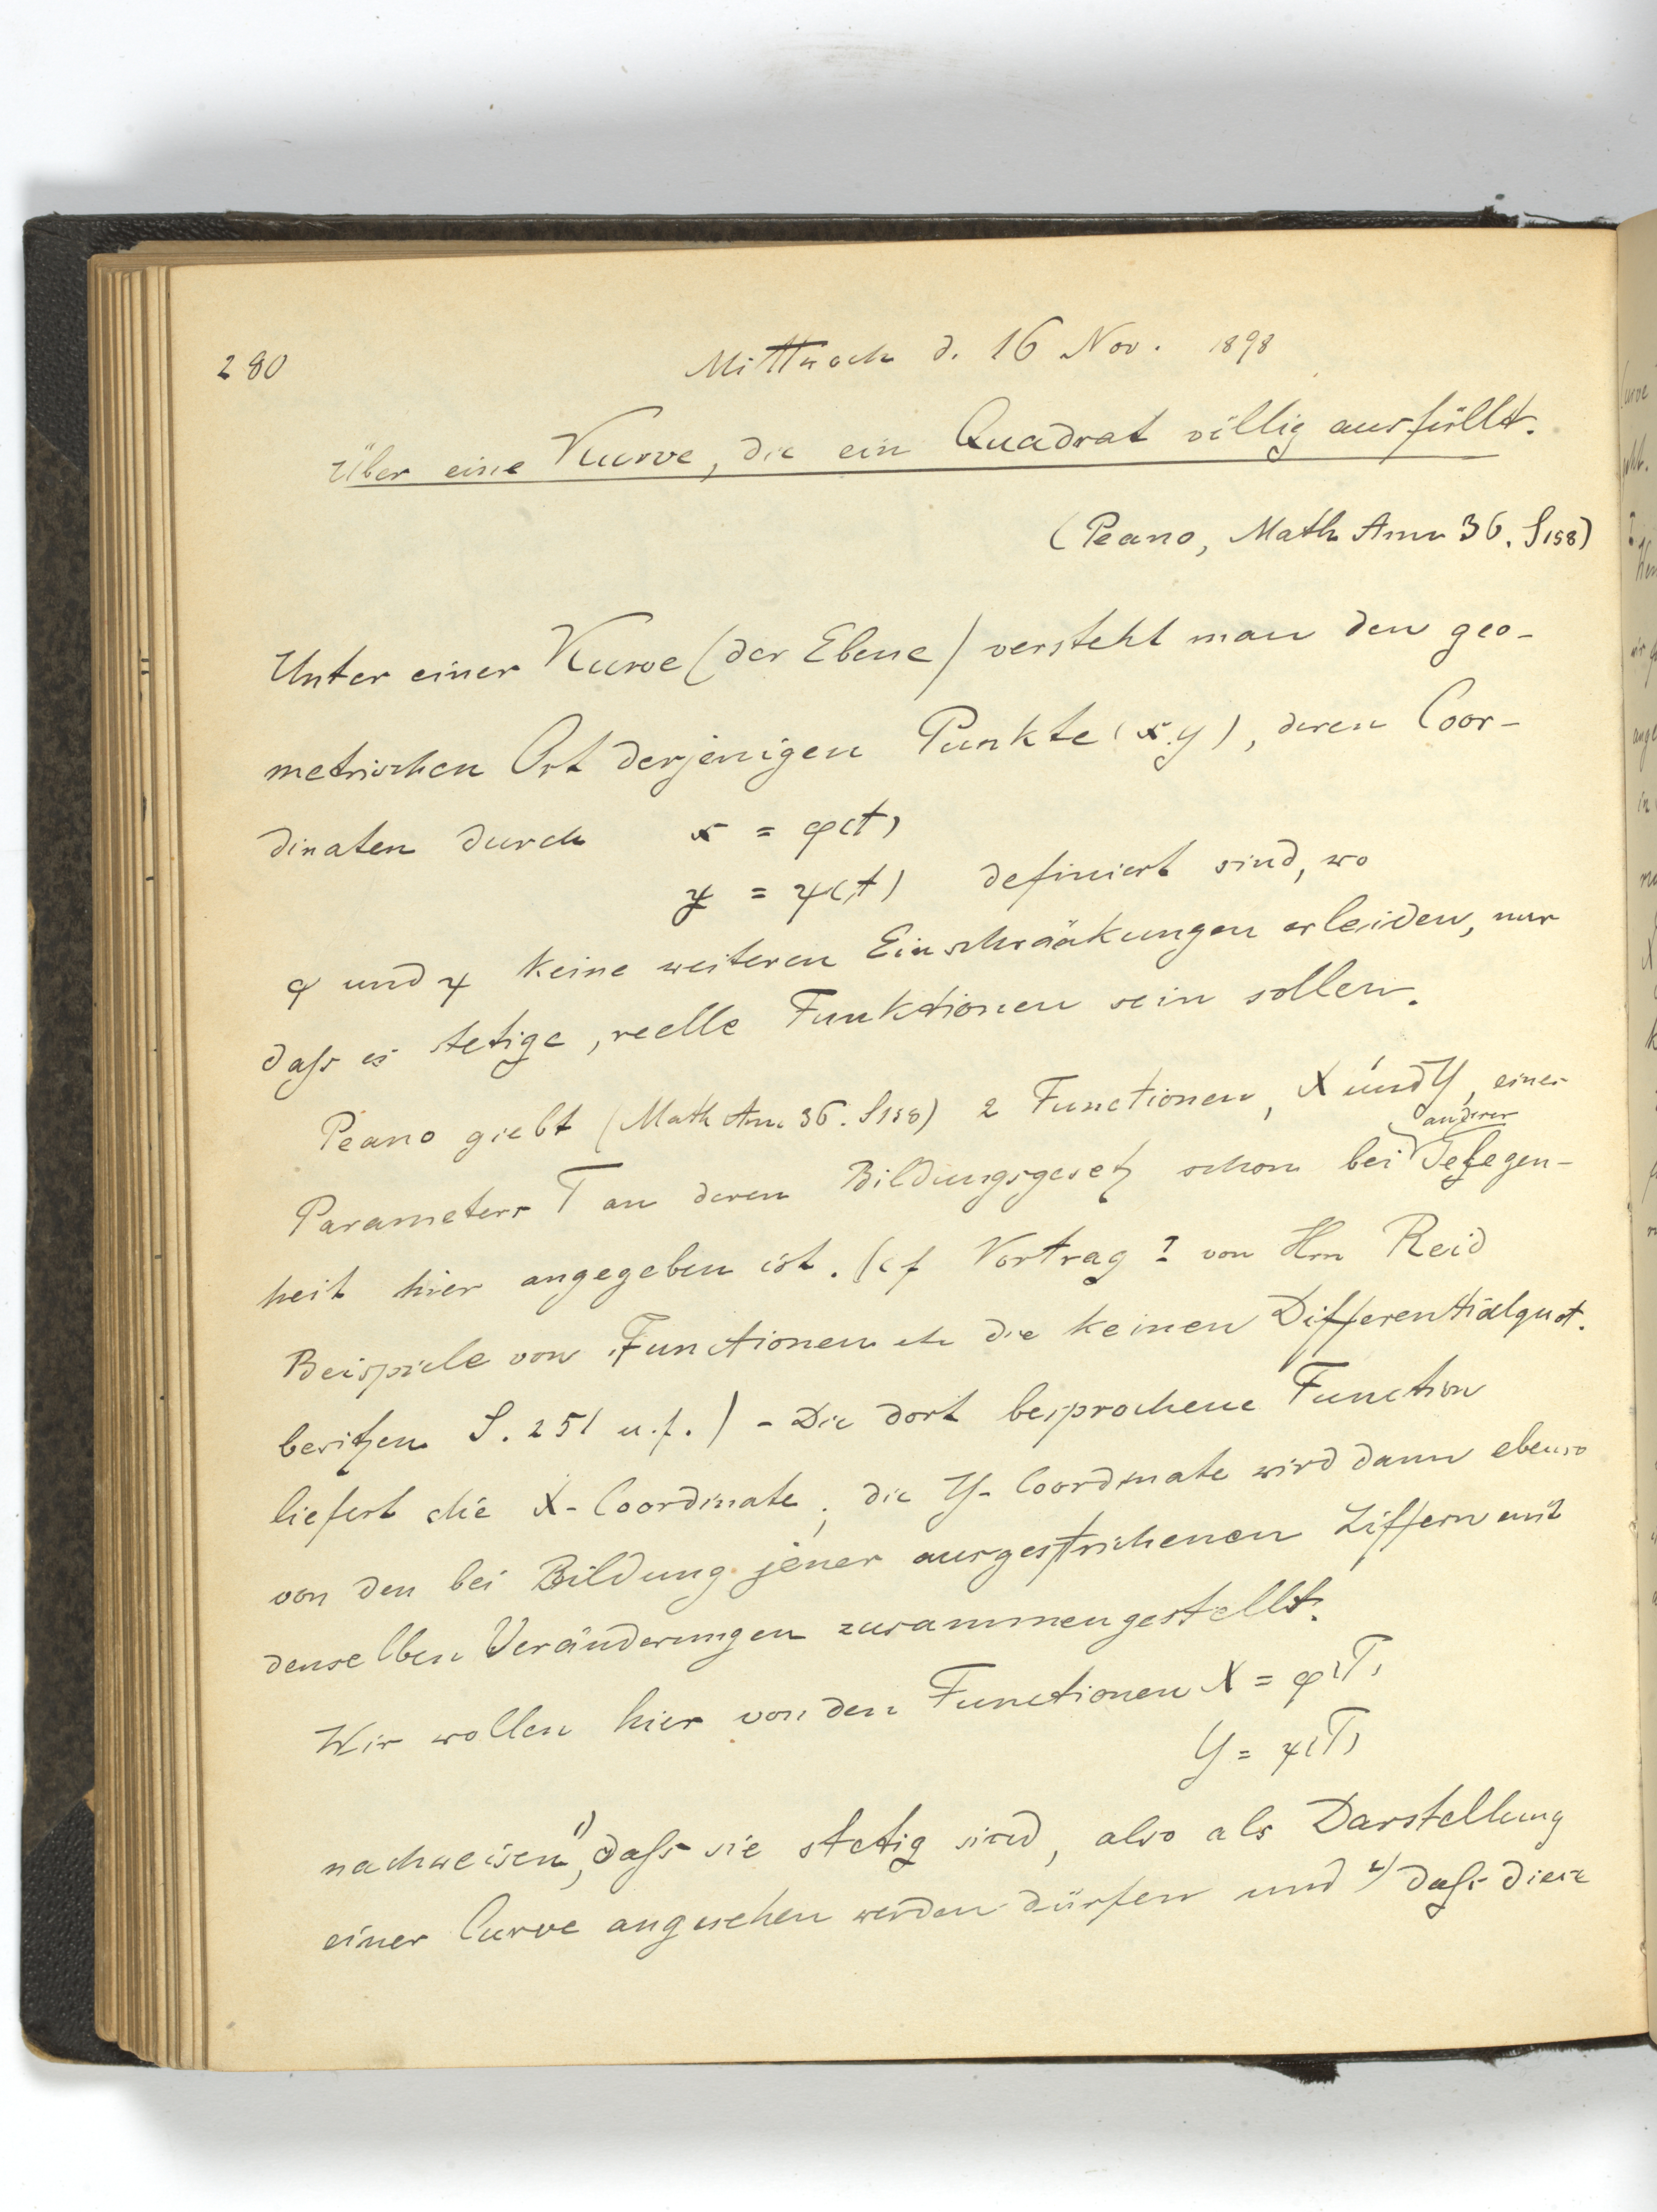 280
Mittwoch d. 16 Nov. 1898
Über eine Kurve, die ein Quadrat völlig ausfüllt.
(Peano, Math Ann 36. S158)
Unter einer Kurve (der Ebene) versteht man den geo-
metrischen Ort derjenigen Punkte (x.y), deren Coor-
dinaten durch x = φ(t)
y = ψ(t) definiert sind, wo
φ und ψ keine weiteren Einschränkungen erleiden, nur
daſs es stetige, reelle Funktionen sein sollen.
Peano giebt (Math Ann. 36. S158) 2 Functionen, X und Y, eines
anderer
Parameters T an deren Bildungsgesetz schon bei Gelegen-
heit hier angegeben ist. (cf Vortrag 2 von Hrn Reid
Beispiele von Functionen etc die keinen Differentialquot.
besitzen S. 251 u.f.) - Die dort besprochene Function
liefert die X-Coordinate; die Y-Coordinate wird dann ebenso
von den bei Bildung jener ausgestrichenen Ziffern mit
denselben Veränderungen zusammengestellt.
Wir wollen hier von den Functionen X = φ(T)
Y = ψ(T)
nachweisen 1), daſs sie stetig sind, also als Darstellung
einer Curve angesehen werden dürfen und 2) daſs diese